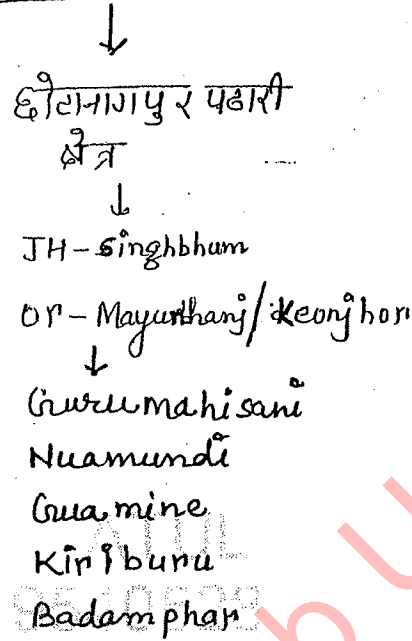 ↓
छोटानागपुर पठारी
क्षेत्र
↓
JH - Singhbhum
Or - Mayurbhanj / Keonjhor
↓
Gurumahisani
Nuamundi
Gua mine
Kiriburu
Badamphar